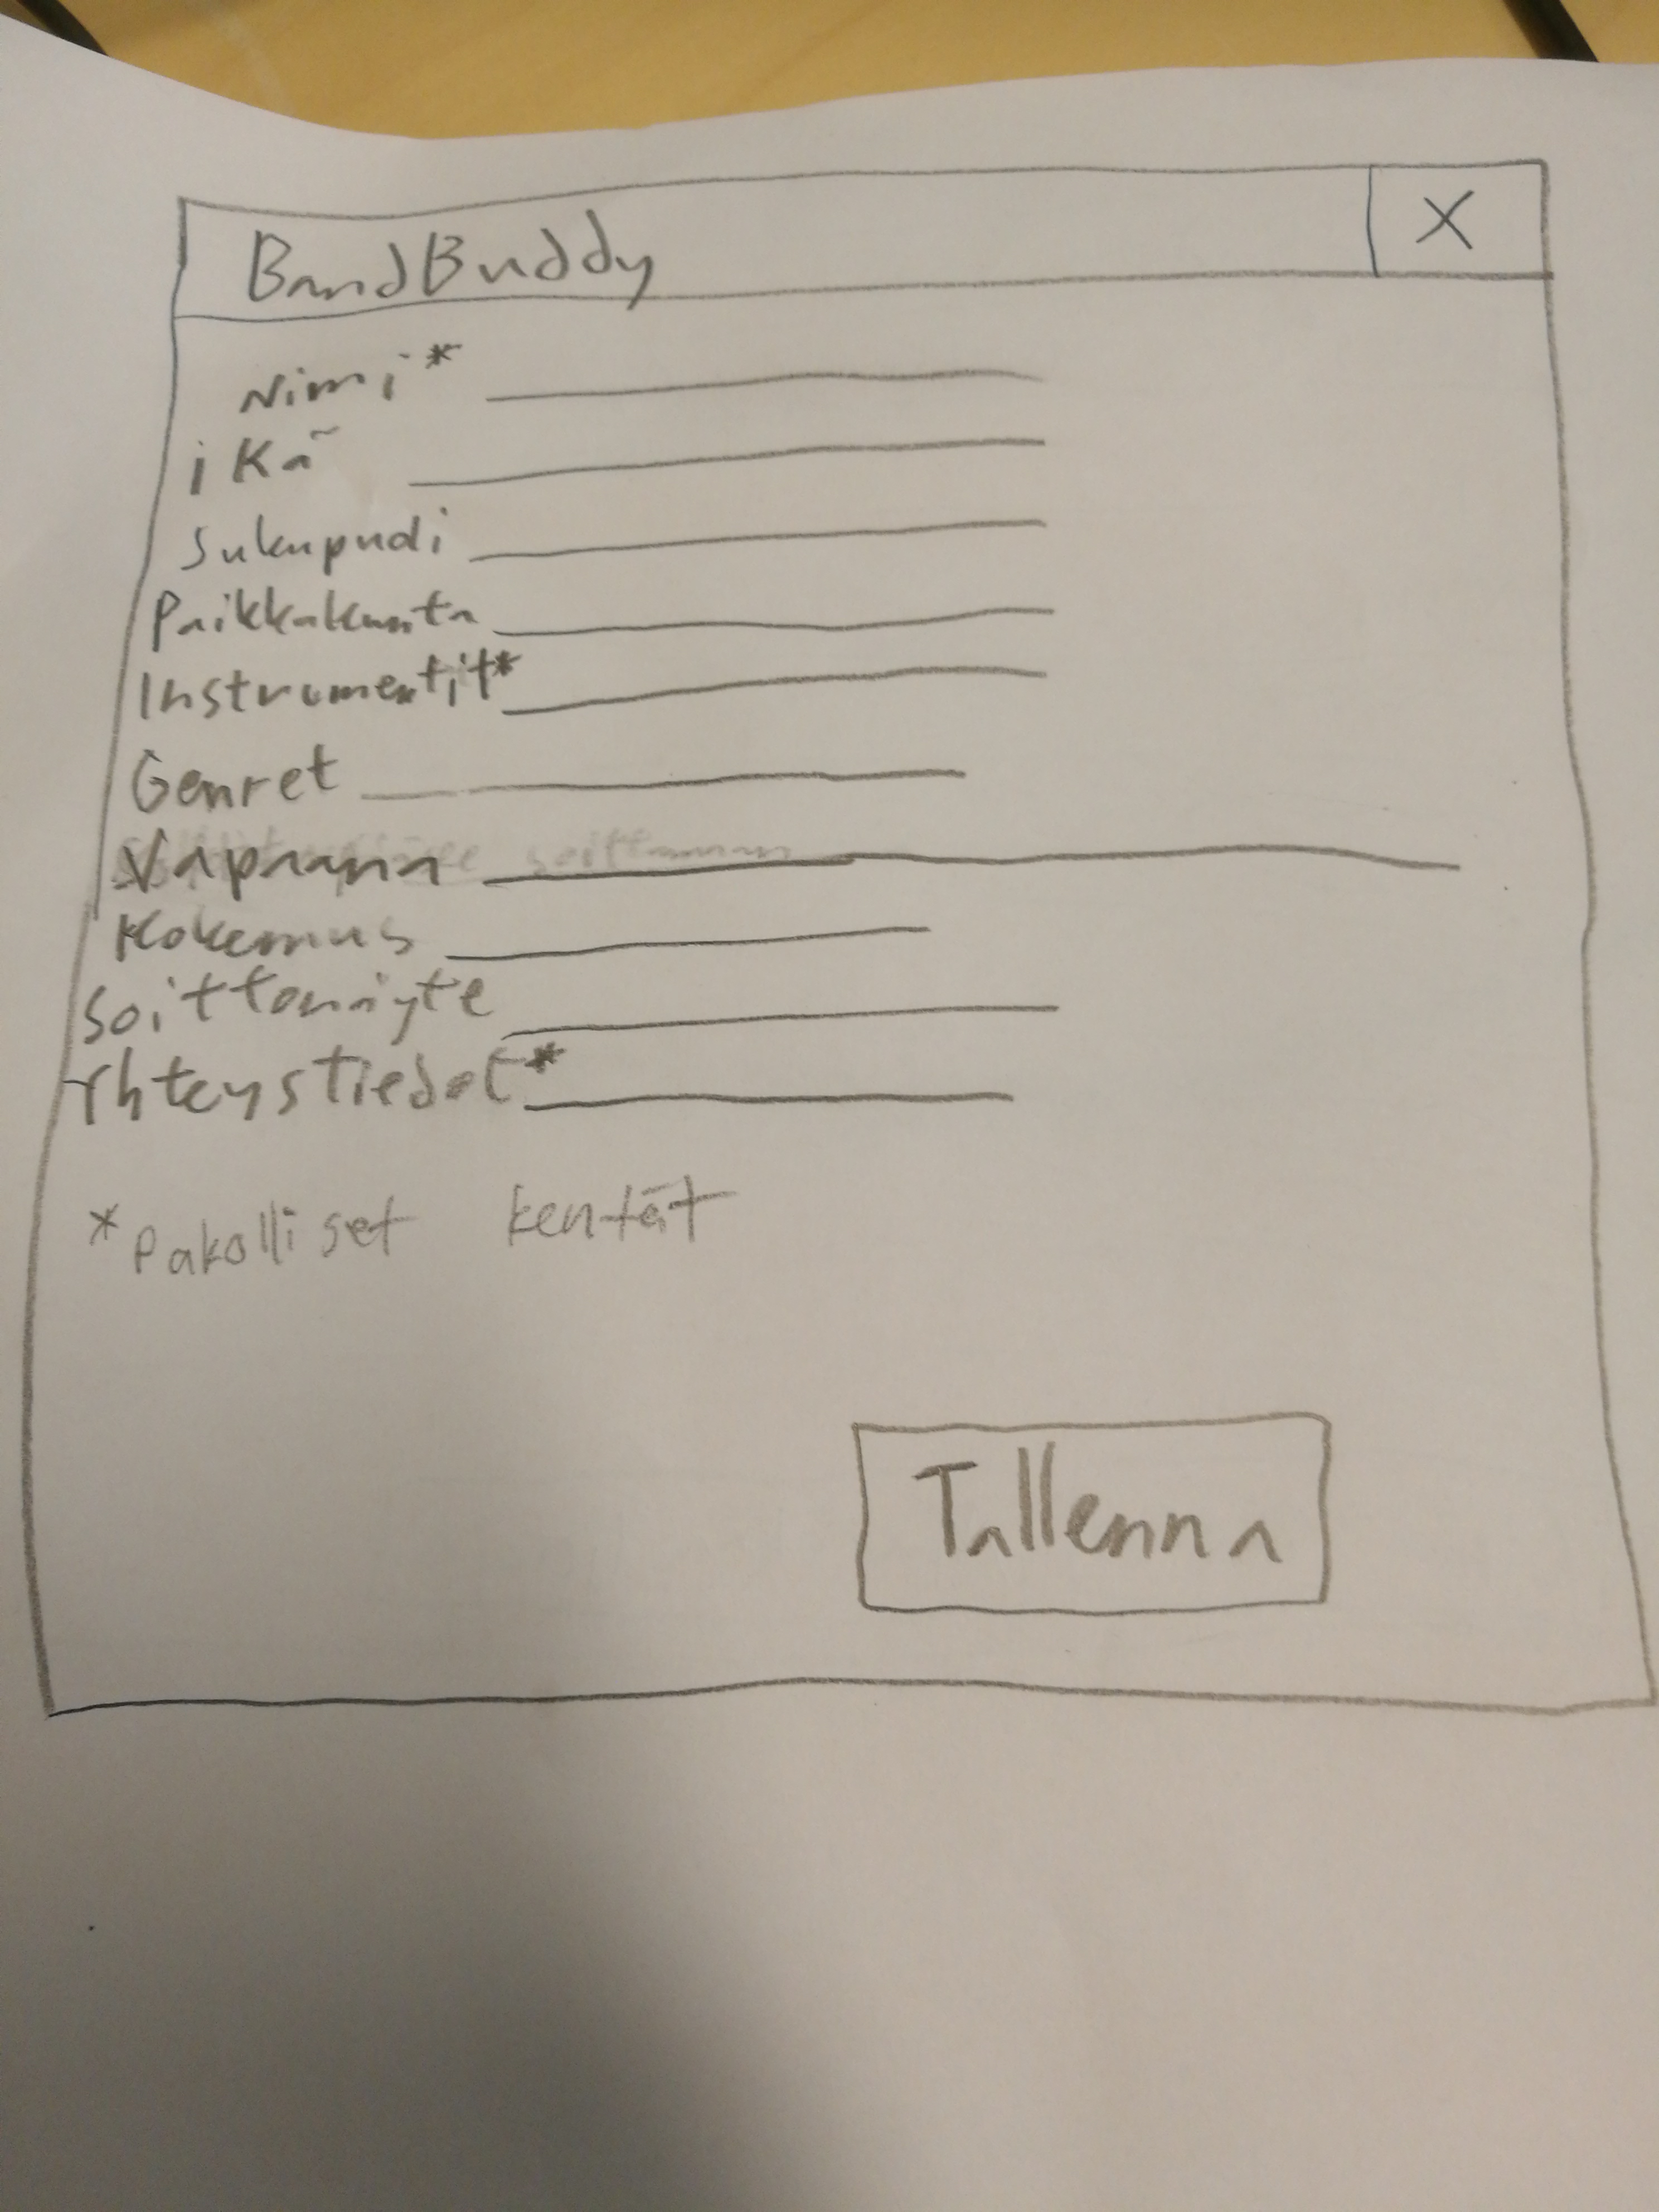 BandBuddy X
Nimi*
iKä
Sukupuoli
Paikkakunta
Instrumentit*
Genret
Vapaana soittamaan
Kokemus
Soittonäyte
Yhteystiedot*
*Pakolliset kentät
Tallenna